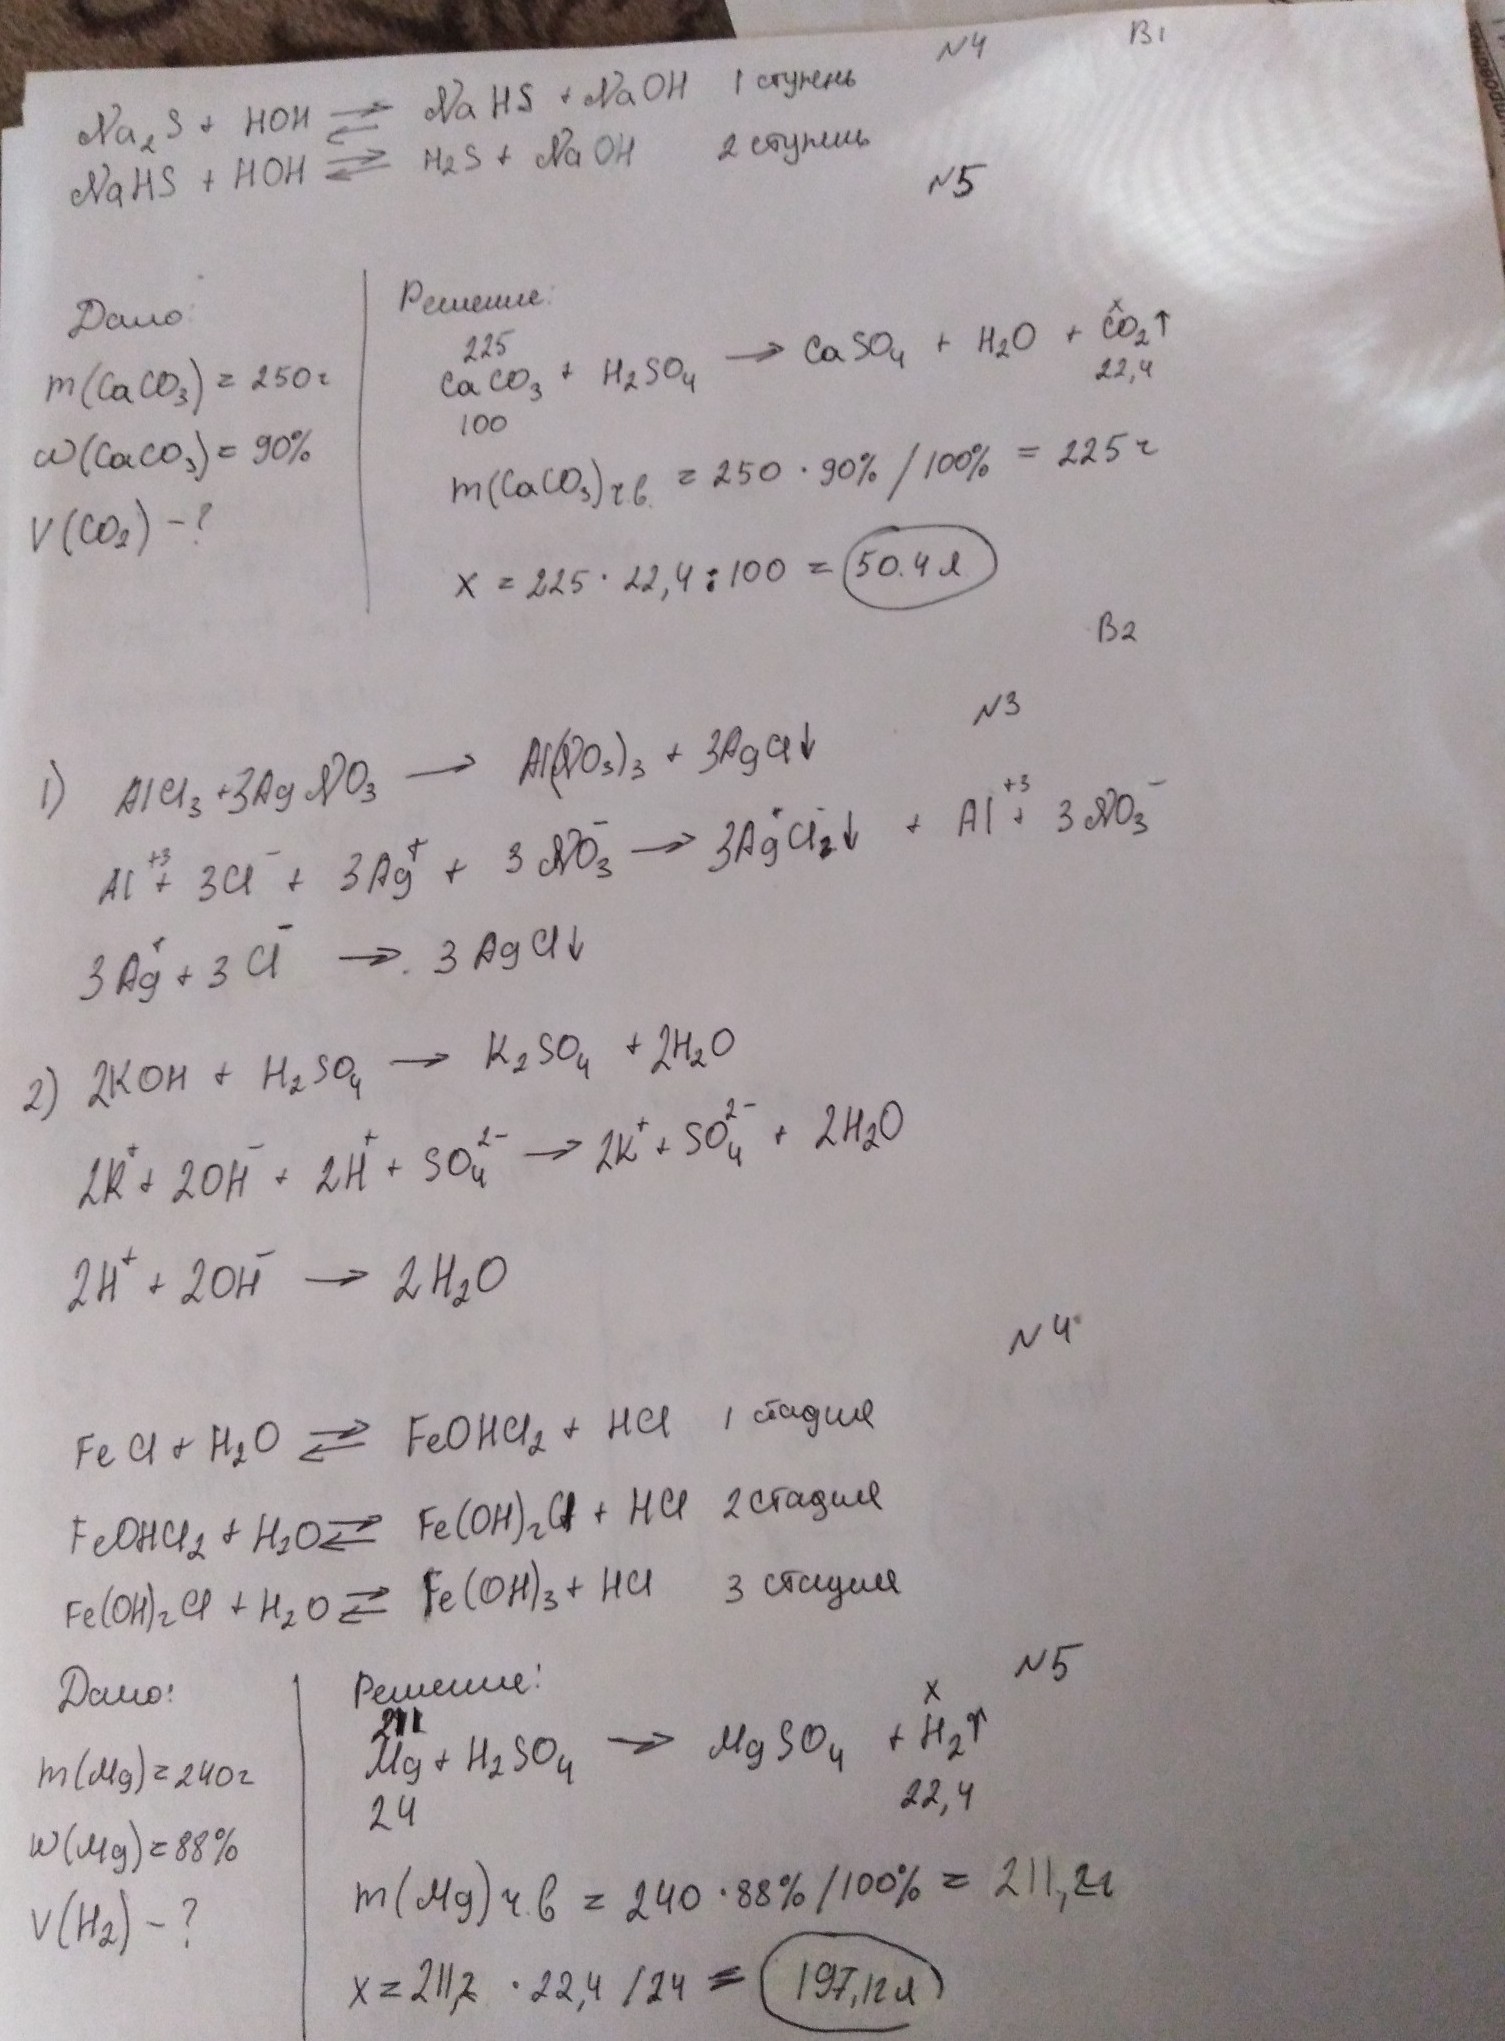 N4 B1
Na2S + HOH ⇄ NaHS + NaOH 1 ступень
NaHS + HOH ⇄ H2S + NaOH 2 ступень
N5
Дано:
m(CaCO3) = 250г
ω(CaCO3) = 90%
V(CO2) - ?
Решение:
225 x
CaCO3 + H2SO4 → CaSO4 + H2O + CO2↑
100 22,4
m(CaCO3)ч.в. = 250 · 90% / 100% = 225 г
x = 225 · 22,4 : 100 = 50.4 л
B2
N3
1) AlCl3 + 3AgNO3 → Al(NO3)3 + 3AgCl↓
Al⁺³ + 3Cl⁻ + 3Ag⁺ + 3NO3⁻ → 3Ag⁺Cl⁻2↓ + Al⁺³ + 3NO3⁻
3Ag⁺ + 3Cl⁻ → 3AgCl↓
2) 2KOH + H2SO4 → K2SO4 + 2H2O
2K⁺ + 2OH⁻ + 2H⁺ + SO4²⁻ → 2K⁺ + SO4²⁻ + 2H2O
2H⁺ + 2OH⁻ → 2H2O
N4
FeCl + H2O ⇄ FeOHCl2 + HCl 1 стадия
FeOHCl2 + H2O ⇄ Fe(OH)2Cl + HCl 2 стадия
Fe(OH)2Cl + H2O ⇄ Fe(OH)3 + HCl 3 стадия
N5
Дано:
m(Mg) = 240г
w(Mg) = 88%
V(H2) - ?
Решение:
211 x
Mg + H2SO4 → MgSO4 + H2↑
24 22,4
m(Mg)ч.в = 240 · 88% / 100% = 211,2г
x = 211,2 · 22,4 / 24 = 197,12л